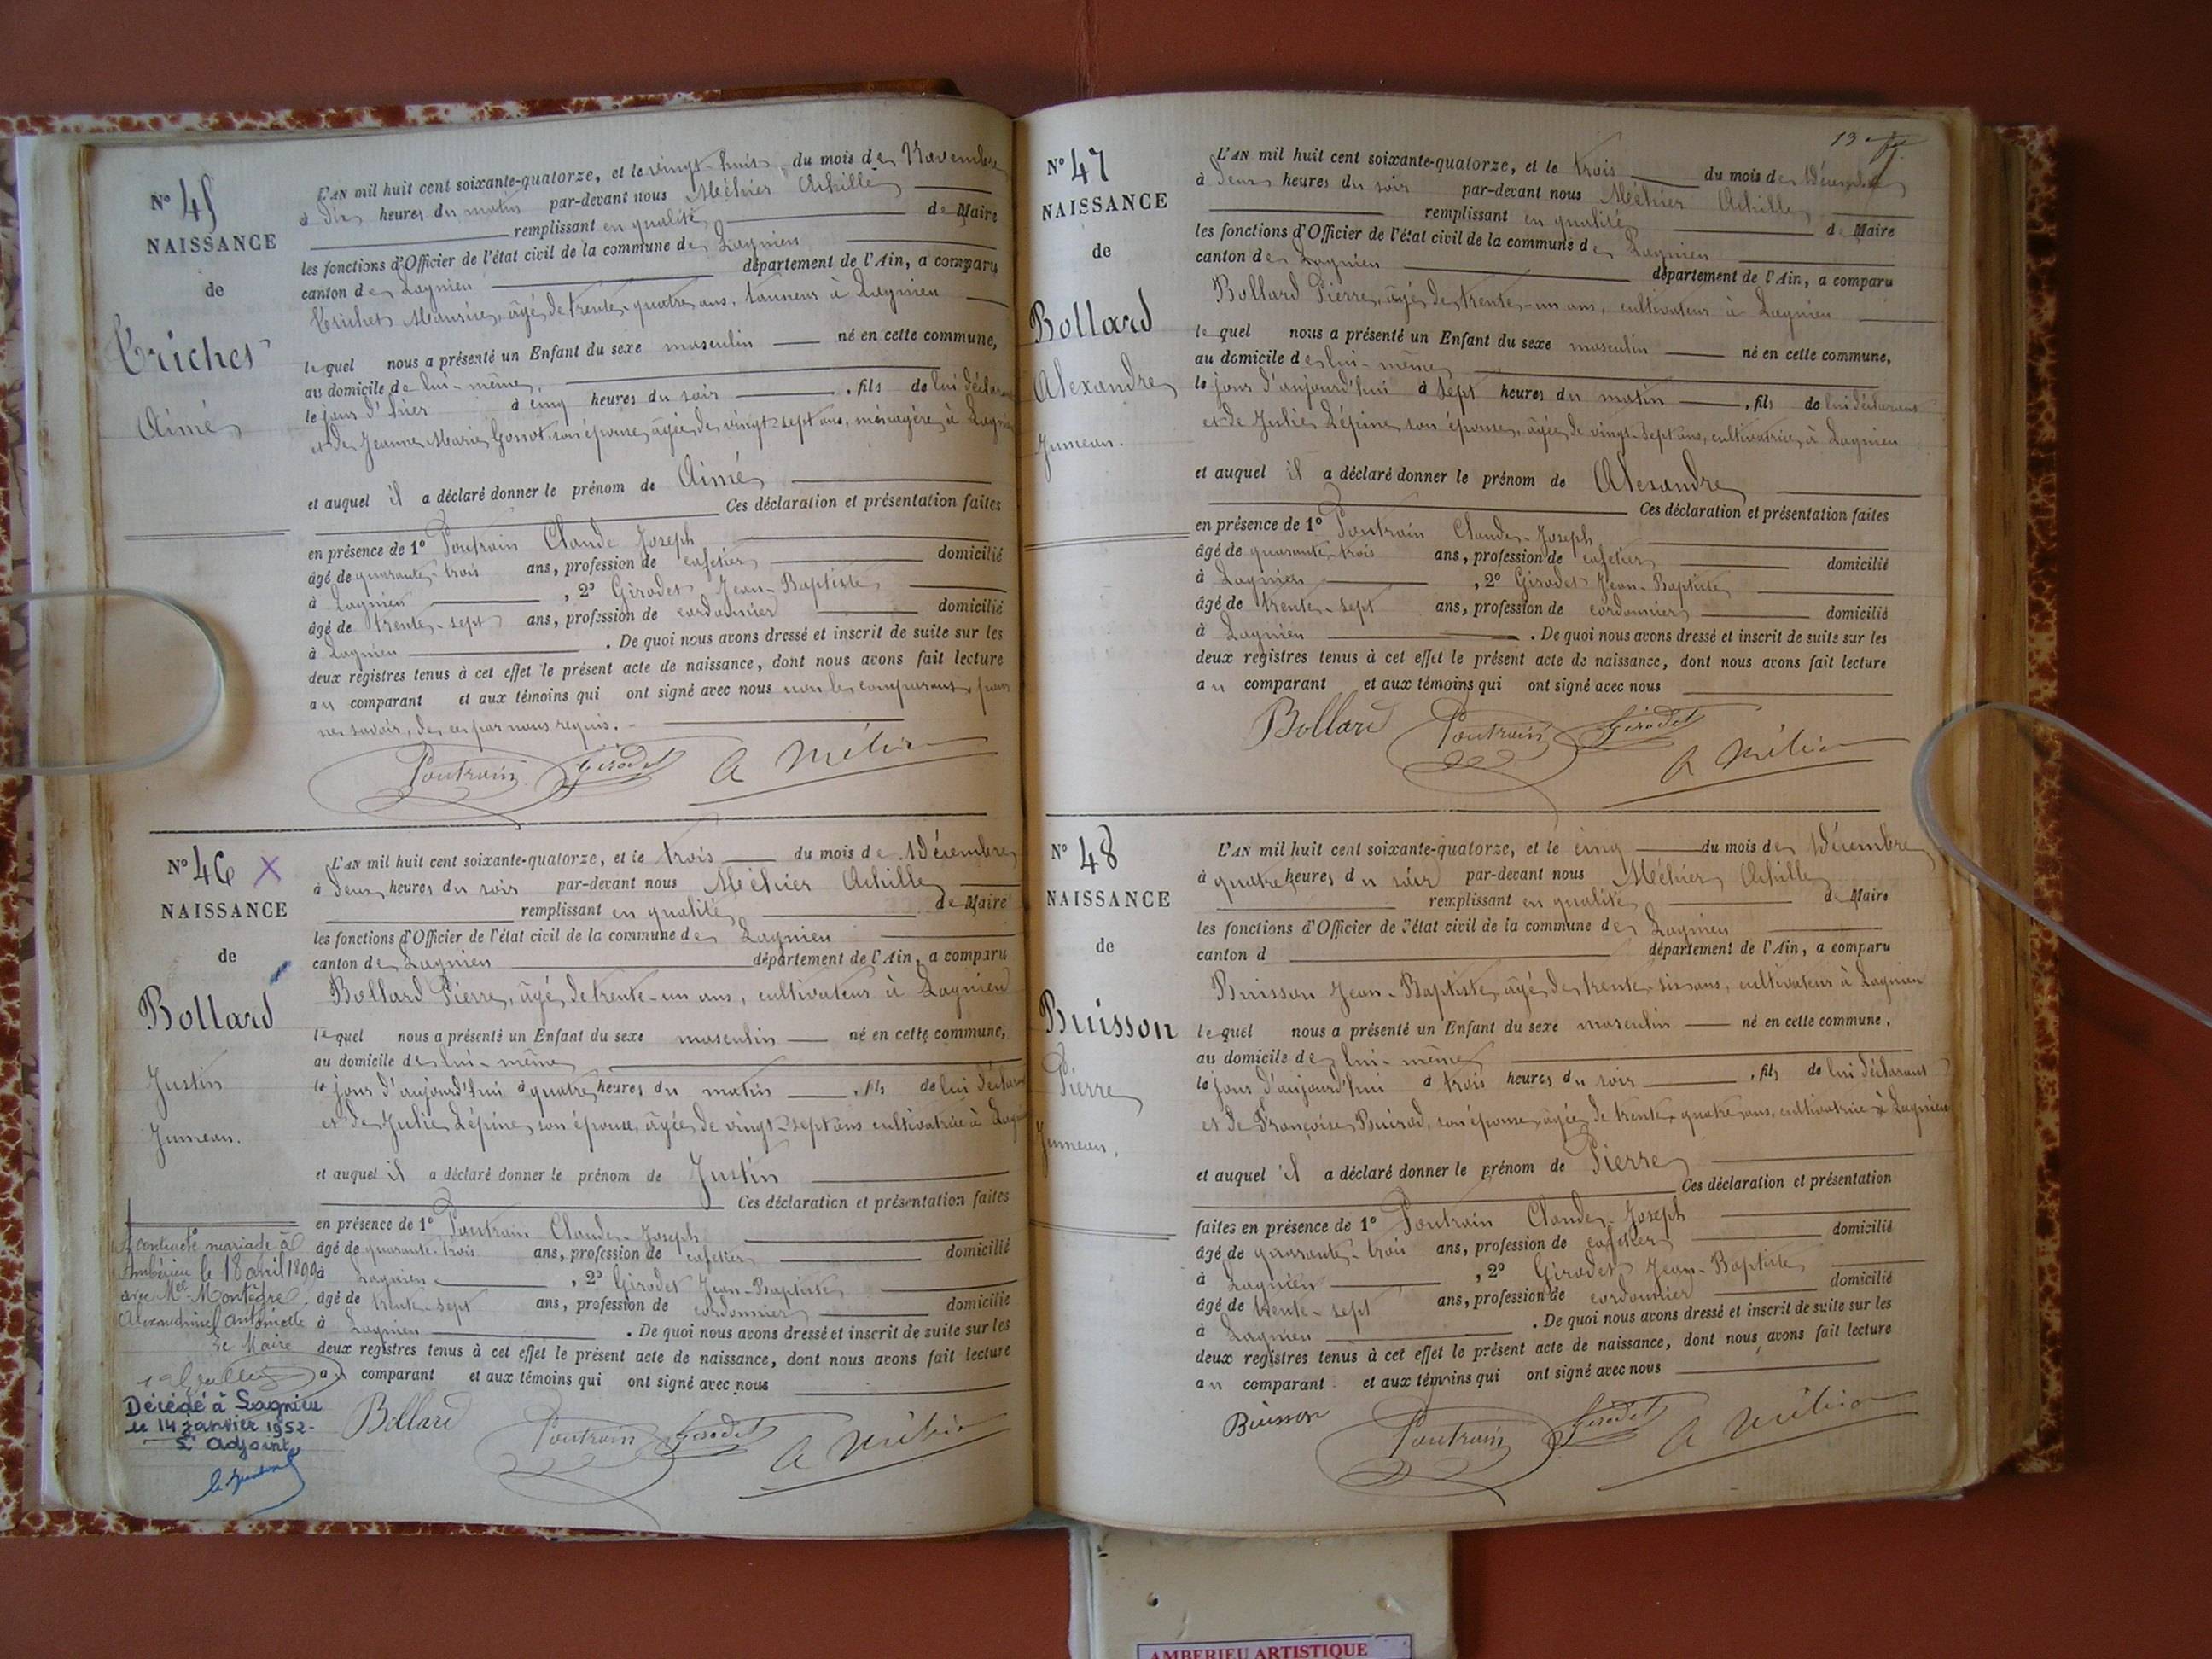 N° 45
NAISSANCE
de
Aimé
L'AN mil huit cent soixante-quatorze, et le vingt-huit du mois de Novembre
à dix heures du matin par-devant nous Méhier Achille
remplissant en qualité de Maire
les fonctions d'Officier de l'état civil de la commune de Lagnieu
canton de Lagnieu département de l'Ain, a comparu
Maurice, âgé de trente-quatre ans, tanneur à Lagnieu
lequel nous a présenté un Enfant du sexe masculin né en cette commune,
au domicile de lui-même,
le jour d'hier à cinq heures du soir, fils de lui déclarant
et de Jeanne Marie Gonnot son épouse, agée de vingt-sept ans, ménagère à Lagnieu
et auquel il a déclaré donner le prénom de Aimé
Ces déclaration et présentation faites
en présence de 1° Poutrain Claude Joseph
âgé de quarante-trois ans, profession de cafetier domicilié
à Lagnieu, 2° Girodet Jean-Baptiste
âgé de trente-sept ans, profession de cordonnier domicilié
à Lagnieu. De quoi nous avons dressé et inscrit de suite sur les
deux registres tenus à cet effet le présent acte de naissance, dont nous avons fait lecture
au comparant et aux témoins qui ont signé avec nous non le comparant pour
ne savoir, de ce par nous requis.
Poutrain Girodet A Méhier
N° 46 X
NAISSANCE
de
Bollard
Justin
Jumeau.
L'AN mil huit cent soixante-quatorze, et le trois du mois de Décembre
à deux heures du soir par-devant nous Méhier Achille
remplissant en qualité de Maire
les fonctions d'Officier de l'état civil de la commune de Lagnieu
canton de Lagnieu département de l'Ain, a comparu
Bollard Pierre, âgé de trente-un ans, cultivateur à Lagnieu
lequel nous a présenté un Enfant du sexe masculin né en cette commune,
au domicile de lui-même
le jour d'aujourd'hui à quatre heures du matin, fils de lui déclarant
et de Julie Lépine son épouse, âgée de vingt-sept ans cultivatrice à Lagnieu
et auquel il a déclaré donner le prénom de Justin
Ces déclaration et présentation faites
en présence de 1° Poutrain Claude-Joseph
âgé de quarante-trois ans, profession de cafetier domicilié
à Lagnieu, 2° Girodet Jean-Baptiste
âgé de trente-sept ans, profession de cordonnier domicilié
à Lagnieu. De quoi nous avons dressé et inscrit de suite sur les
deux registres tenus à cet effet le présent acte de naissance, dont nous avons fait lecture
au comparant et aux témoins qui ont signé avec nous
Bollard Poutrain Girodet A Méhier
A contracté mariage à
Ambérieu le 18 avril
avec Mlle
Antoinette
Le Maire
Décédé à Lagnieu
le 14 janvier 1952-
L'Adjoint
13
N° 47
NAISSANCE
de
Bollard
Alexandre
Jumeau.
L'AN mil huit cent soixante-quatorze, et le trois du mois de Décembre
à deux heures du soir par-devant nous Méhier Achille
remplissant en qualité de Maire
les fonctions d'Officier de l'état civil de la commune de Lagnieu
canton de Lagnieu département de l'Ain, a comparu
Bollard Pierre, âgé de trente-un ans, cultivateur à Lagnieu
lequel nous a présenté un Enfant du sexe masculin né en cette commune,
au domicile de lui-même
le jour d'aujourd'hui à sept heures du matin, fils de lui déclarant
et de Julie Lépine son épouse, âgée de vingt-sept ans, cultivatrice à Lagnieu
et auquel il a déclaré donner le prénom de Alexandre
Ces déclaration et présentation faites
en présence de 1° Poutrain Claude-Joseph
âgé de quarante-trois ans, profession de cafetier domicilié
à Lagnieu, 2° Girodet Jean-Baptiste
âgé de trente-sept ans, profession de cordonnier domicilié
à Lagnieu. De quoi nous avons dressé et inscrit de suite sur les
deux registres tenus à cet effet le présent acte de naissance, dont nous avons fait lecture
au comparant et aux témoins qui ont signé avec nous
Bollard Poutrain Girodet A Méhier
N° 48
NAISSANCE
de
Buisson
Pierre
Jumeau.
L'AN mil huit cent soixante-quatorze, et le cinq du mois de Décembre
à quatre heures du soir par-devant nous Méhier Achille
remplissant en qualité de Maire
les fonctions d'Officier de l'état civil de la commune de Lagnieu
canton d département de l'Ain, a comparu
Buisson Jean-Baptiste, âgé de trente-six ans, cultivateur à Lagnieu
lequel nous a présenté un Enfant du sexe masculin né en cette commune,
au domicile de lui-même
le jour d'aujourd'hui à trois heures du soir, fils de lui déclarant
et de Françoise son épouse, agée de trente-quatre ans, cultivatrice à Lagnieu
et auquel il a déclaré donner le prénom de Pierre
Ces déclaration et présentation
faites en présence de 1° Poutrain Claude-Joseph
âgé de quarante-trois ans, profession de cafetier domicilié
à Lagnieu, 2° Girodet Jean-Baptiste
âgé de trente-sept ans, profession de cordonnier domicilié
à Lagnieu. De quoi nous avons dressé et inscrit de suite sur les
deux registres tenus à cet effet le présent acte de naissance, dont nous avons fait lecture
au comparant et aux témoins qui ont signé avec nous
Buisson Poutrain Girodet A Méhier
AMBERIEU ARTISTIQUE